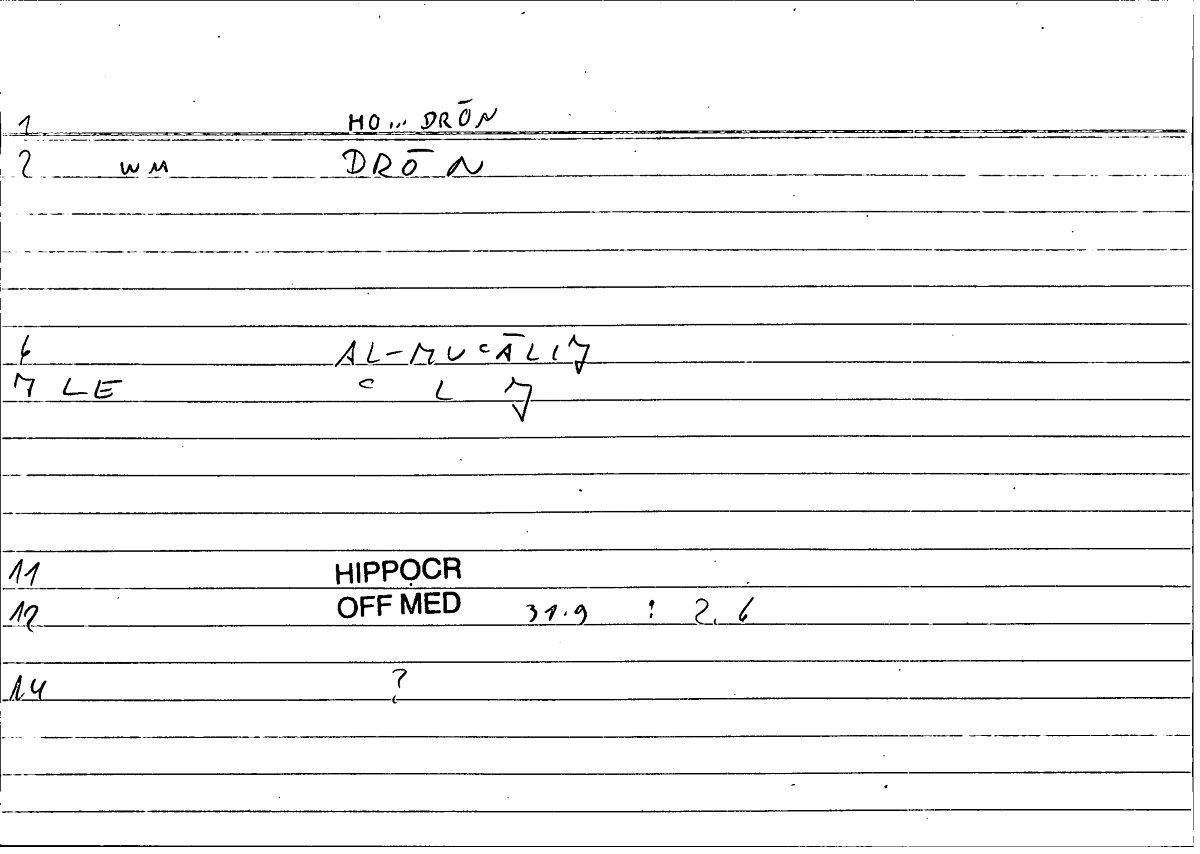 1 HO... DRŌN
2 WM DRŌN
6 AL-MUʿĀLIǦ
7 LE ʿ L Ǧ
11 HIPPOCR
12 OFF MED 31.9 : 2.6
14 ?